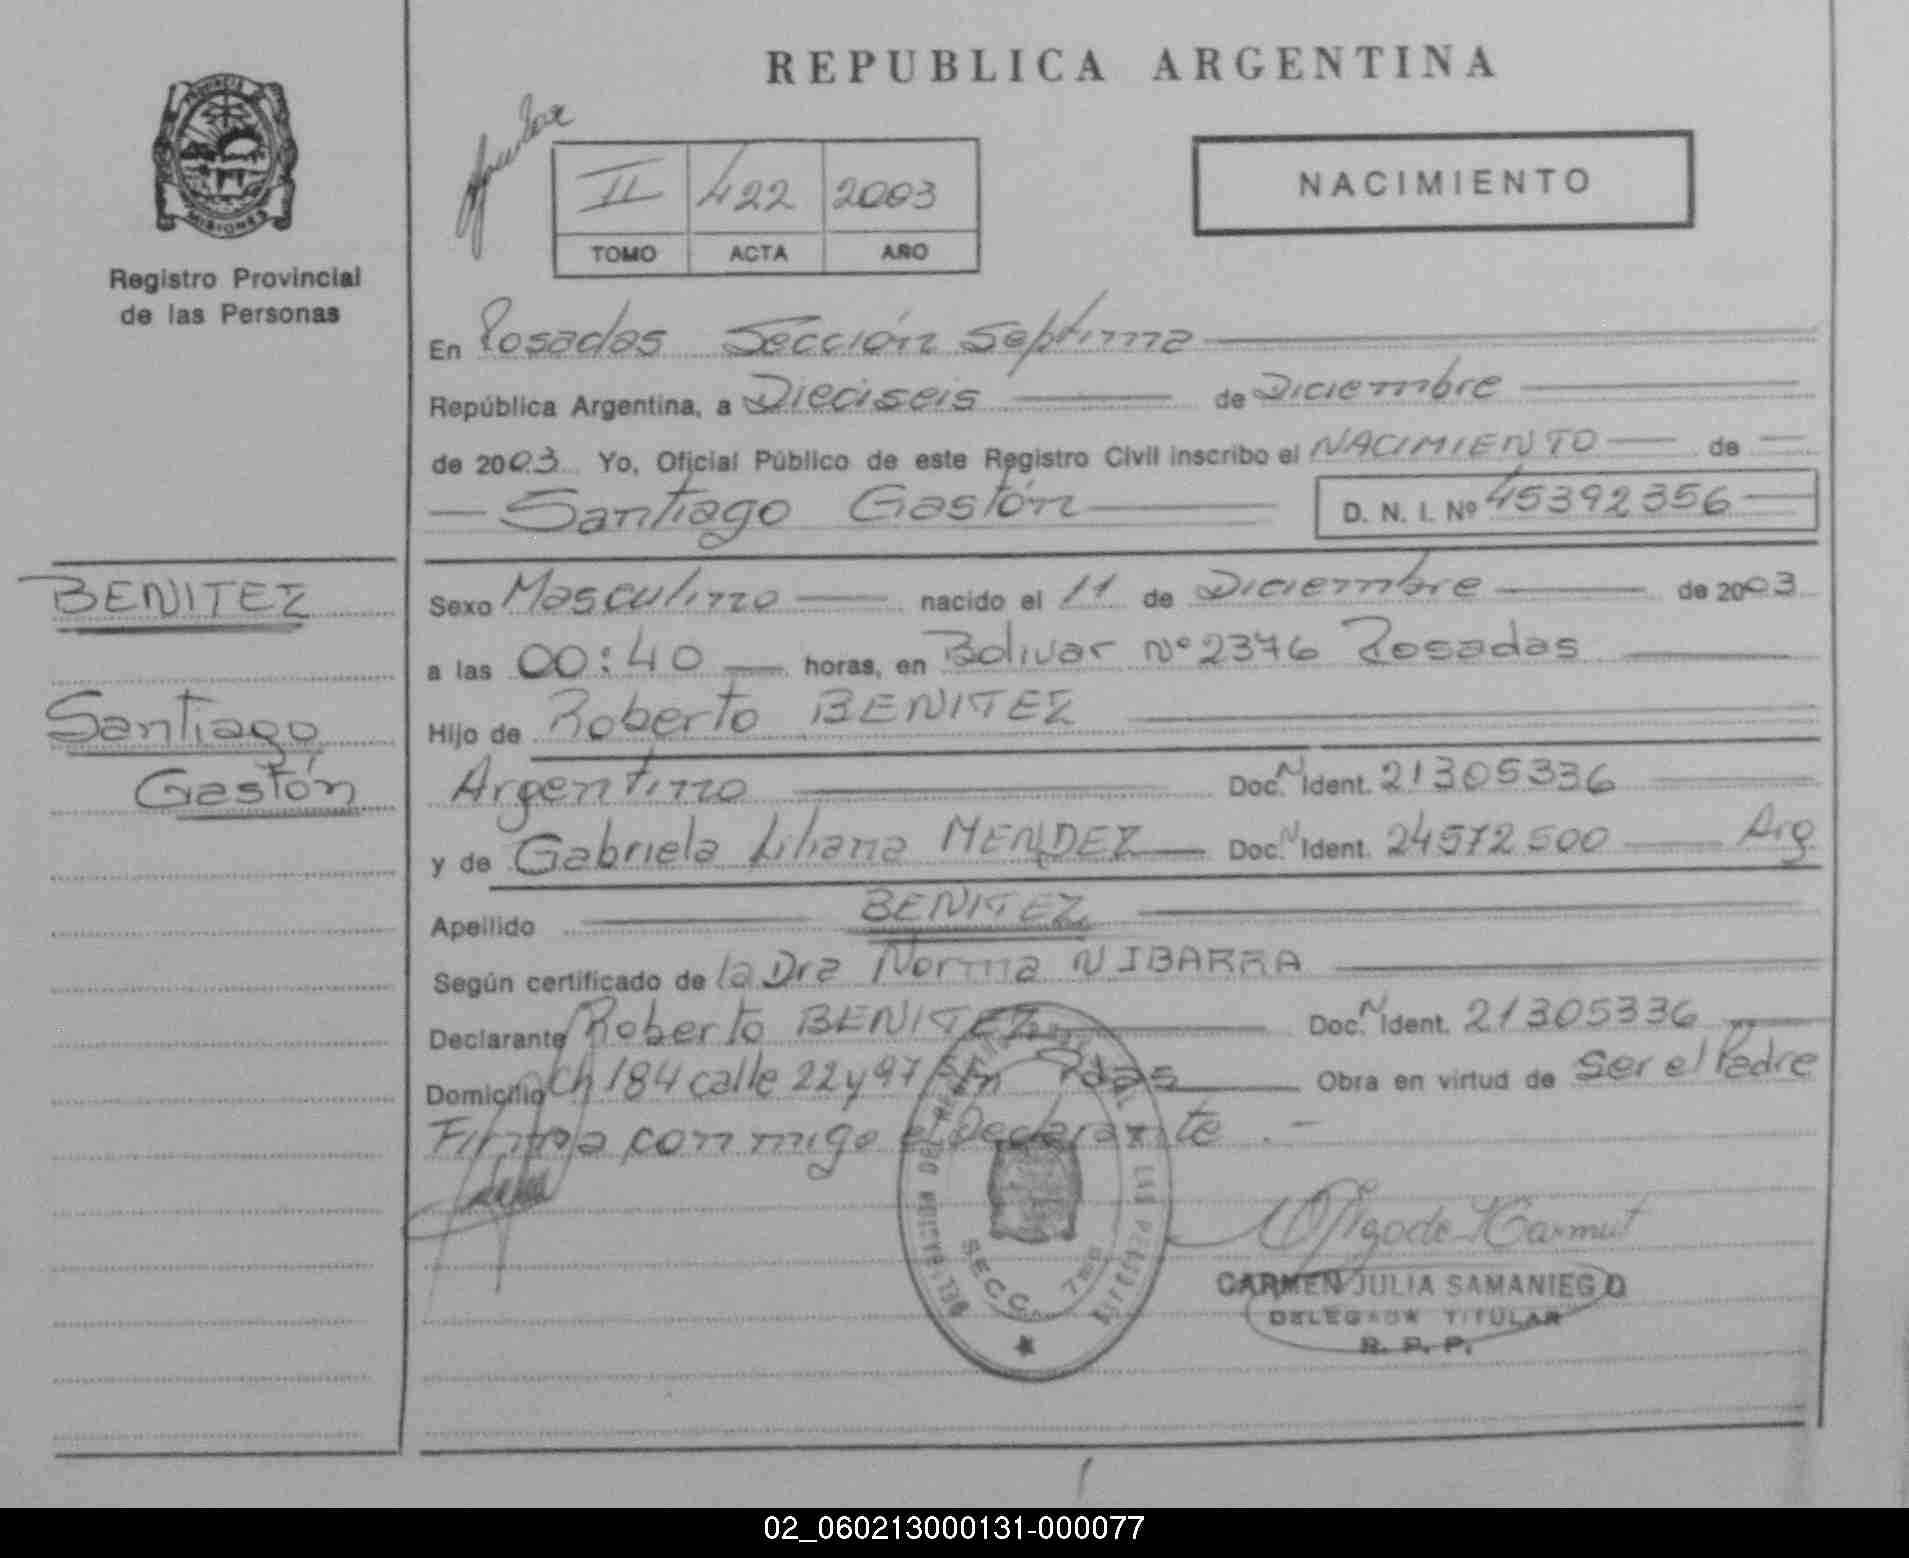 REPUBLICA ARGENTINA
PROVINCIA DE
MISIONES
Registro Provincial
de las Personas
II 422 2003
TOMO ACTA AÑO
NACIMIENTO
En Posadas Sección Septima
República Argentina, a Dieciseis de Diciembre
de 2003 Yo, Oficial Público de este Registro Civil inscribo el NACIMIENTO de
Santiago Gastón D. N. I. Nº 45392356
BENITEZ
Santiago
Gastón
Sexo Masculino nacido el 11 de Diciembre de 2003
a las 00:40 horas, en Bolivar Nº 2376 Posadas
Hijo de Roberto BENITEZ
Argentino Doc. N Ident. 21305336
y de Gabriela Liliana MENDEZ Doc. N Ident. 24572500 Arg
Apellido BENITEZ
Según certificado de la Dra Norma N IBARRA
Declarante Roberto BENITEZ Doc. N Ident. 21305336
Domicilio Ch 184 calle 22 y 97 S/n Pdas Obra en virtud de Ser el Padre
Firma conmigo el Declarante .-
SECC. 7ma
CARMEN JULIA SAMANIEGO
DELEGADA TITULAR
R. P. P.
02_060213000131-000077